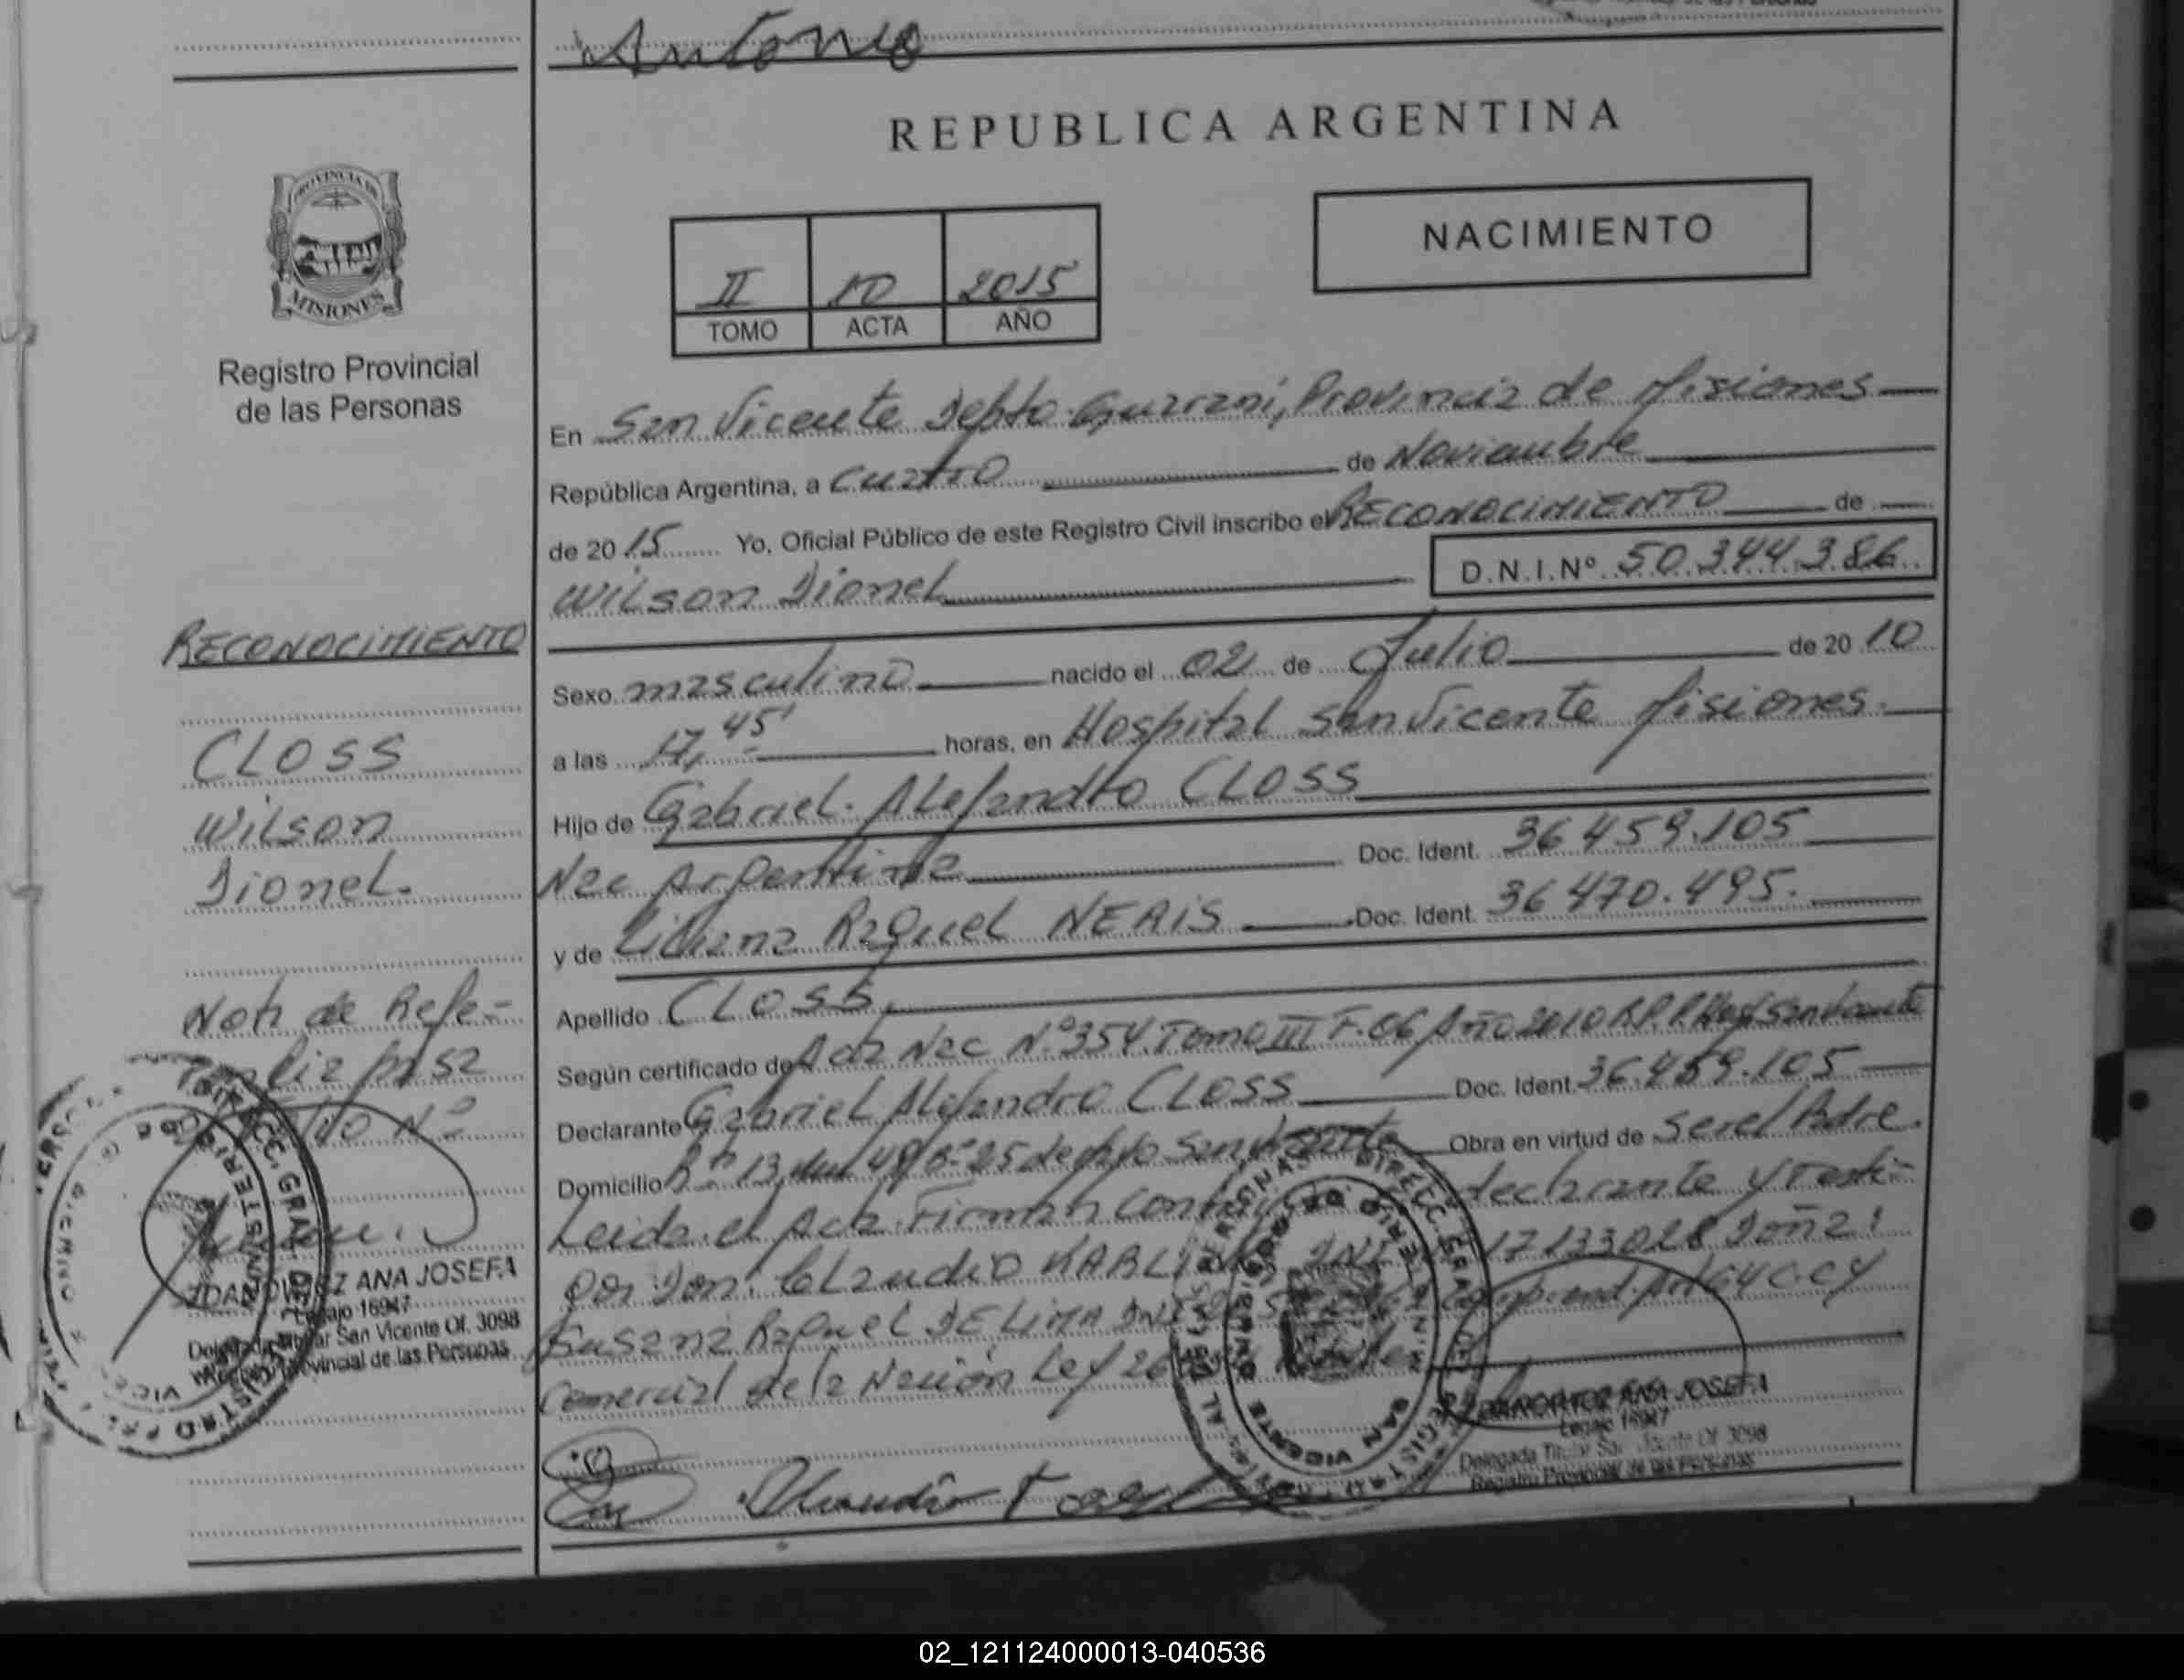 Antonio
REPUBLICA ARGENTINA
PROVINCIA DE
MISIONES
Registro Provincial
de las Personas
II 10 2015
TOMO ACTA AÑO
NACIMIENTO
En San Vicente Depto. Guaraní, Provincia de Misiones
República Argentina, a cuatro de Noviembre
de 2015 Yo, Oficial Público de este Registro Civil inscribo el RECONOCIMIENTO de
Wilson Dionel D.N.I.Nº 50.344.386
Sexo masculino nacido el 02 de Julio de 2010
a las 17,45' horas, en Hospital San Vicente Misiones.
Hijo de Gabriel Alejandro CLOSS
Nac Argentina Doc. Ident. 36 459.105
y de Liliana Raquel NERIS Doc. Ident. 36 470.495.
Apellido CLOSS
Según certificado de Acta Nac Nº 354 Tomo III F. 06 Año 2010 R.P.P. Hosp San Vicente
Declarante Gabriel Alejandro CLOSS Doc. Ident. 36.459.105
Domicilio 13 San Vicente Obra en virtud de Ser el Padre.
Leida el Acta Firman declarante y Testi-
por Don: Claudio 17133028 Doña:
Susana Raquel DE LIMA
Comercial de la Nación Ley 26
RECONOCIMIENTO
CLOSS
Wilson
Dionel.
Nota de Refe-
rencia
Nº
ANA JOSEFA
Legajo 16947
Delegada Titular San Vicente Of. 3098
Registro Provincial de las Personas
ANA JOSEFA
Legajo 16947
Delegada Titular San Vicente Of. 3098
Registro Provincial de las Personas
02_121124000013-040536